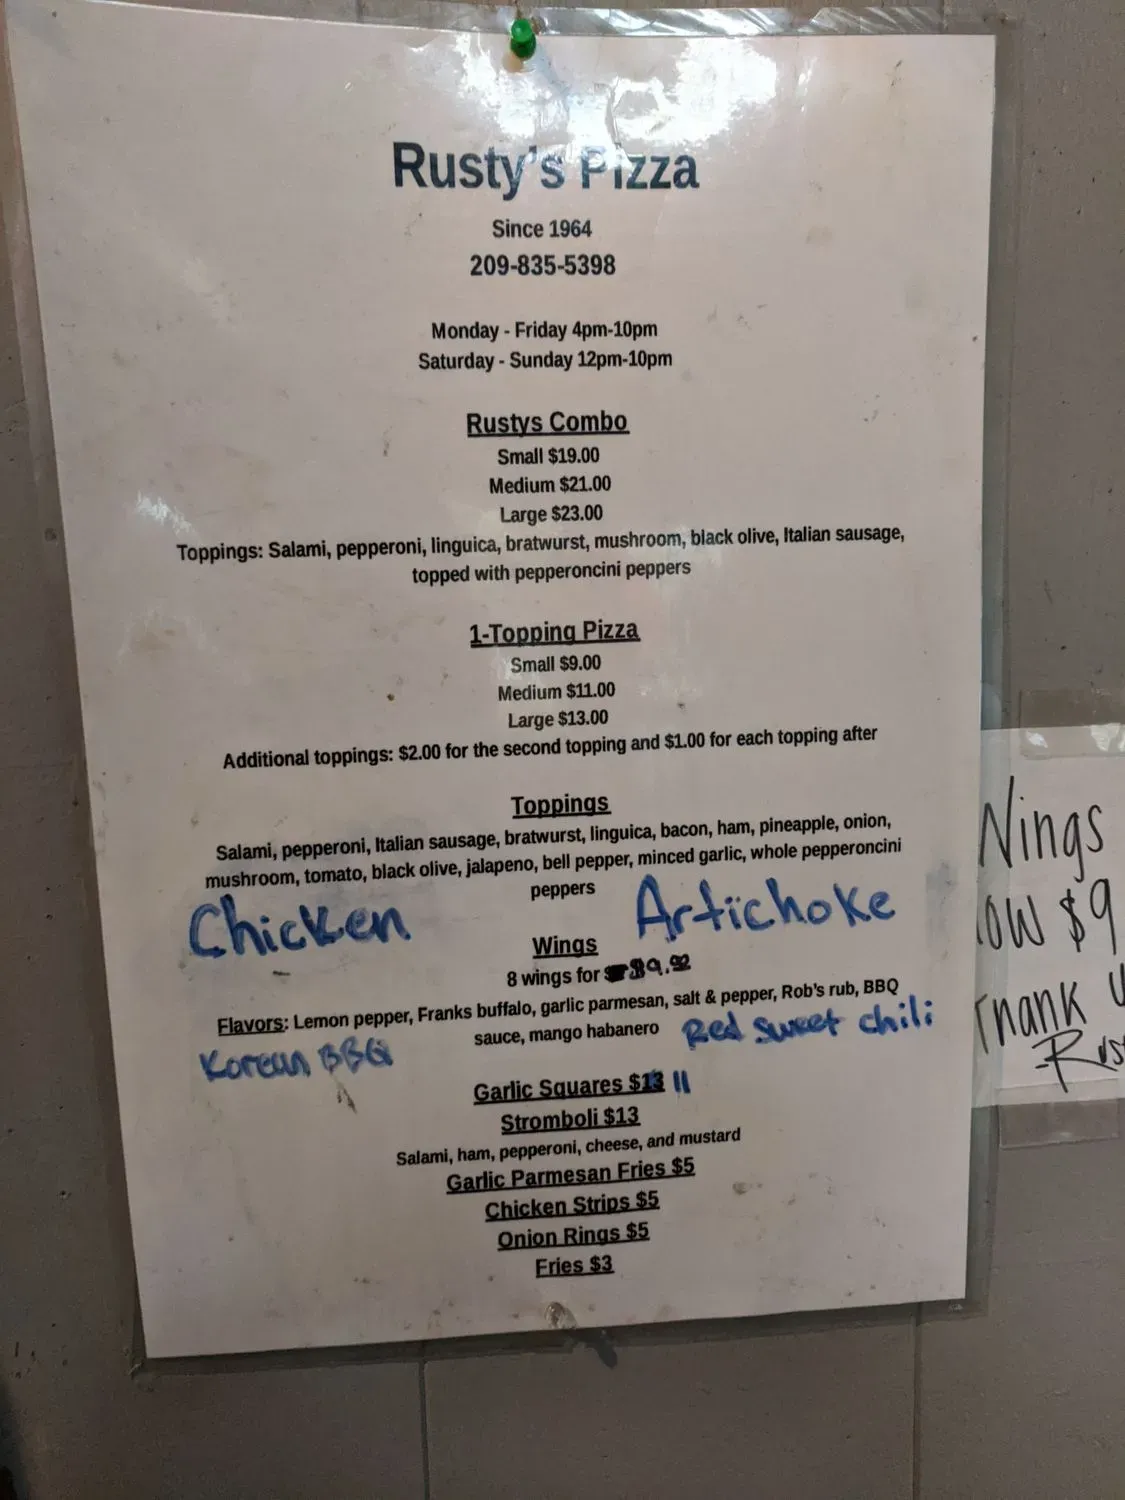 Rusty's Pizza
Since 1964
209-835-5398
Monday - Friday 4pm-10pm
Saturday - Sunday 12pm-10pm
Rustys Combo
Small $19.00
Medium $21.00
Large $23.00
Toppings: Salami, pepperoni, linguica, bratwurst, mushroom, black olive, Italian sausage,
topped with pepperoncini peppers
1-Topping Pizza
Small $9.00
Medium $11.00
Large $13.00
Additional toppings: $2.00 for the second topping and $1.00 for each topping after
Toppings
Salami, pepperoni, Italian sausage, bratwurst, linguica, bacon, ham, pineapple, onion,
mushroom, tomato, black olive, jalapeno, bell pepper, minced garlic, whole pepperoncini
peppers
Chicken Artichoke
Wings
8 wings for $9.00
Flavors: Lemon pepper, Franks buffalo, garlic parmesan, salt & pepper, Rob's rub, BBQ
sauce, mango habanero
Korean BBQ Red sweet chili
Garlic Squares $13 11
Stromboli $13
Salami, ham, pepperoni, cheese, and mustard
Garlic Parmesan Fries $5
Chicken Strips $5
Onion Rings $5
Fries $3
Wings
$9
Thank